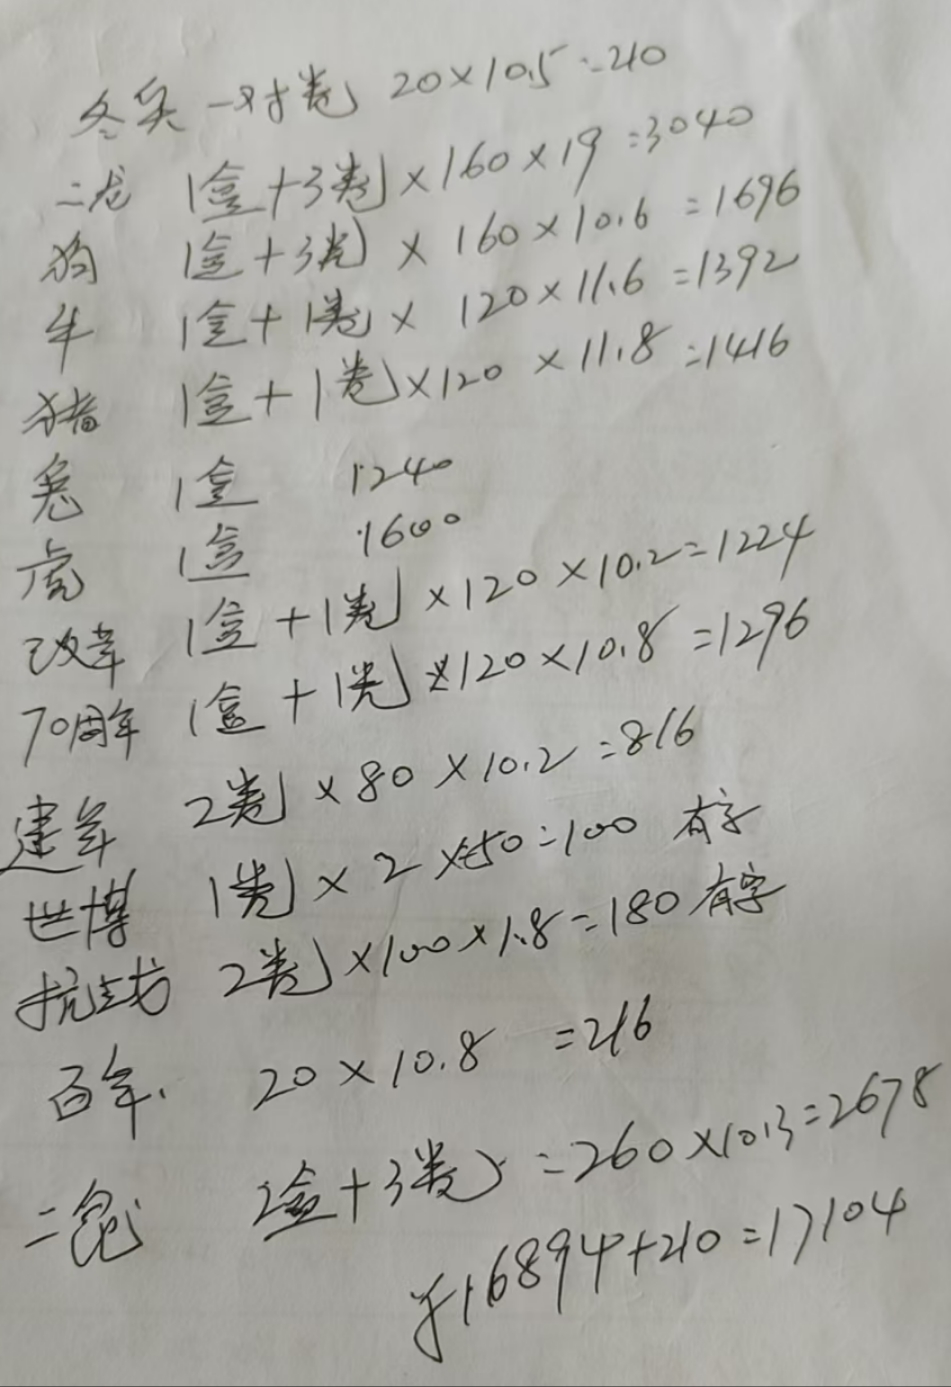 冬奥 一对卷 20×10.5=210
二龙 1盒+3卷×160×19=3040
狗 1盒+3卷 × 160×10.6=1696
牛 1盒+1卷× 120×11.6=1392
猪 1盒+1卷×120×11.8=1416
兔 1盒 1240
虎 1盒 1600
改革 1盒+1卷×120×10.2=1224
70周年 1盒+1卷×120×10.8=1296
建军 2卷×80×10.2=816
世博 1卷×2×50=100 有字
抗战 2卷×100×1.8=180 有字
百年. 20×10.8 =216
二 2盒+3卷=260×10.3=2678
¥16894+210=17104